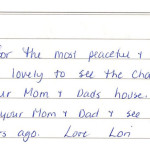 for the most peaceful +
lovely to see the cha
ur Mom + Dads house.
your Mom + Dad + see
rs ago. Love Lori